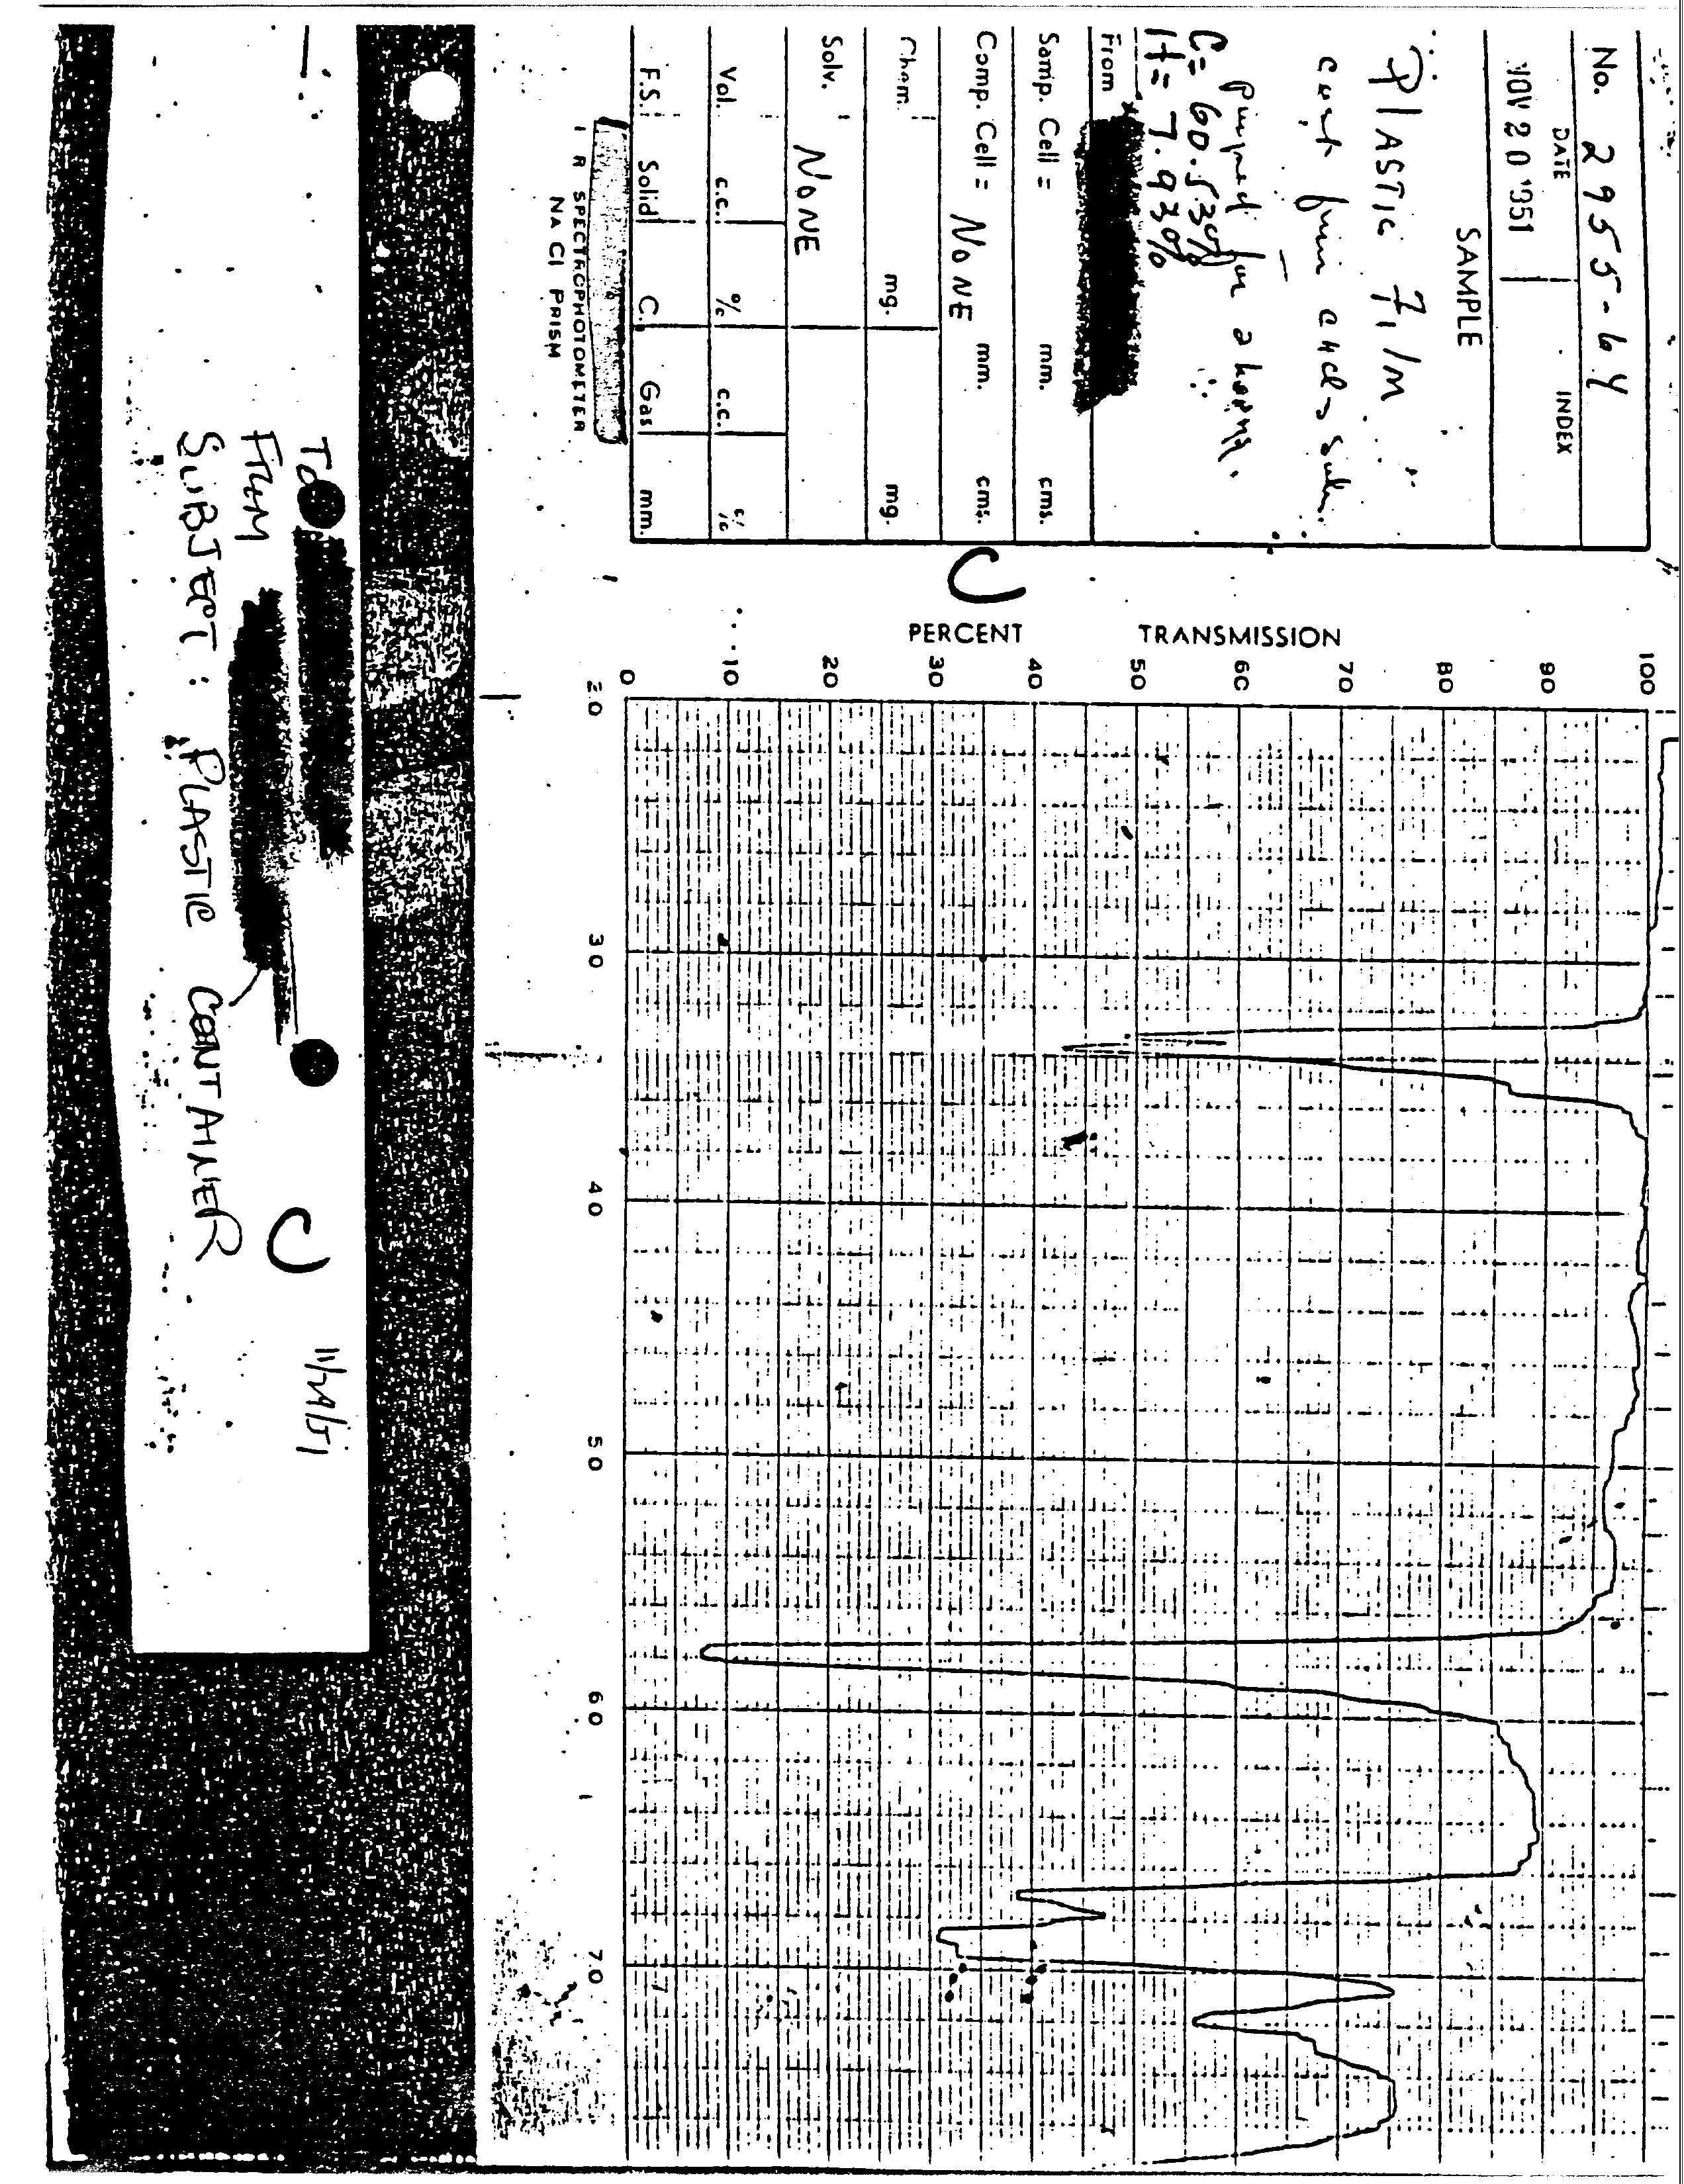 No. 2955-64
DATE
INDEX
NOV 20 1951
SAMPLE
PLASTIC
cast from CHCl3 soln.
Pumped for 2 hours.
C = 60.53%
H = 7.93%
From
Samp. Cell = mm. cms.
Comp. Cell = NONE mm. cms.
Chem. mg. mg.
Solv. NONE
Vol. c.c. % c.c. %
F.S. Solid C. Gas mm.
I R SPECTROPHOTOMETER
NA Cl PRISM
PERCENT TRANSMISSION
100
90
80
70
60
50
40
30
20
10
0
2.0
3 0
4 0
5 0
6 0
7 0
To
FROM
SUBJECT: PLASTIC CONTAINER
11/29/51